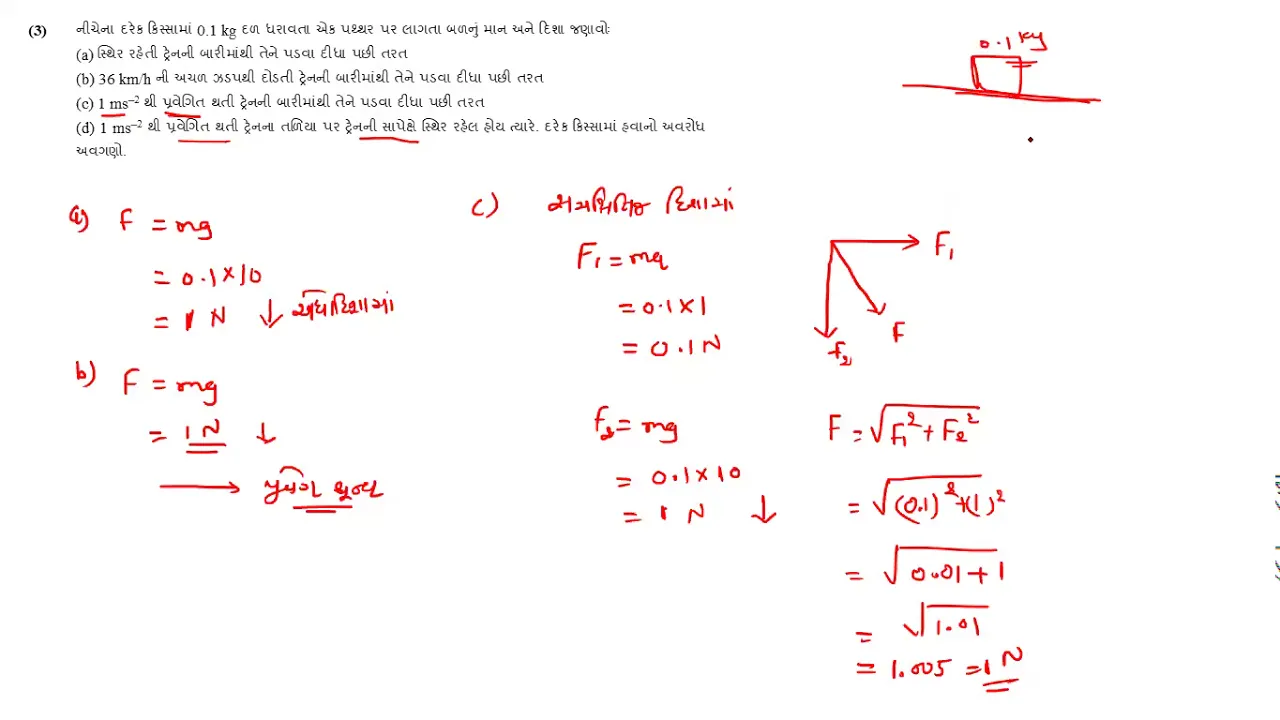 (3) નીચેના દરેક કિસ્સામાં 0.1 kg દળ ધરાવતા એક પથ્થર પર લાગતા બળનું માન અને દિશા જણાવોઃ
(a) સ્થિર રહેતી ટ્રેનની બારીમાંથી તેને પડવા દીધા પછી તરત
(b) 36 km/h ની અચળ ઝડપથી દોડતી ટ્રેનની બારીમાંથી તેને પડવા દીધા પછી તરત
(c) 1 ms⁻² થી પ્રવેગિત થતી ટ્રેનની બારીમાંથી તેને પડવા દીધા પછી તરત
(d) 1 ms⁻² થી પ્રવેગિત થતી ટ્રેનના તળિયા પર ટ્રેનની સાપેક્ષે સ્થિર રહેલ હોય ત્યારે. દરેક કિસ્સામાં હવાનો અવરોધ
અવગણો.
0.1 kg
a) F = mg
= 0.1 × 10
= 1 N ↓ અધોદિશામાં
b) F = mg
= 1 N ↓
→ પ્રવેગ શૂન્ય
c) સમક્ષિતિજ દિશામાં
F₁ = ma
= 0.1 × 1
= 0.1 N
F₂ = mg
= 0.1 × 10
= 1 N ↓
F₁
F
F₂
F = √F₁² + F₂²
= √(0.1)² + (1)²
= √0.01 + 1
= √1.01
= 1.005 = 1 N